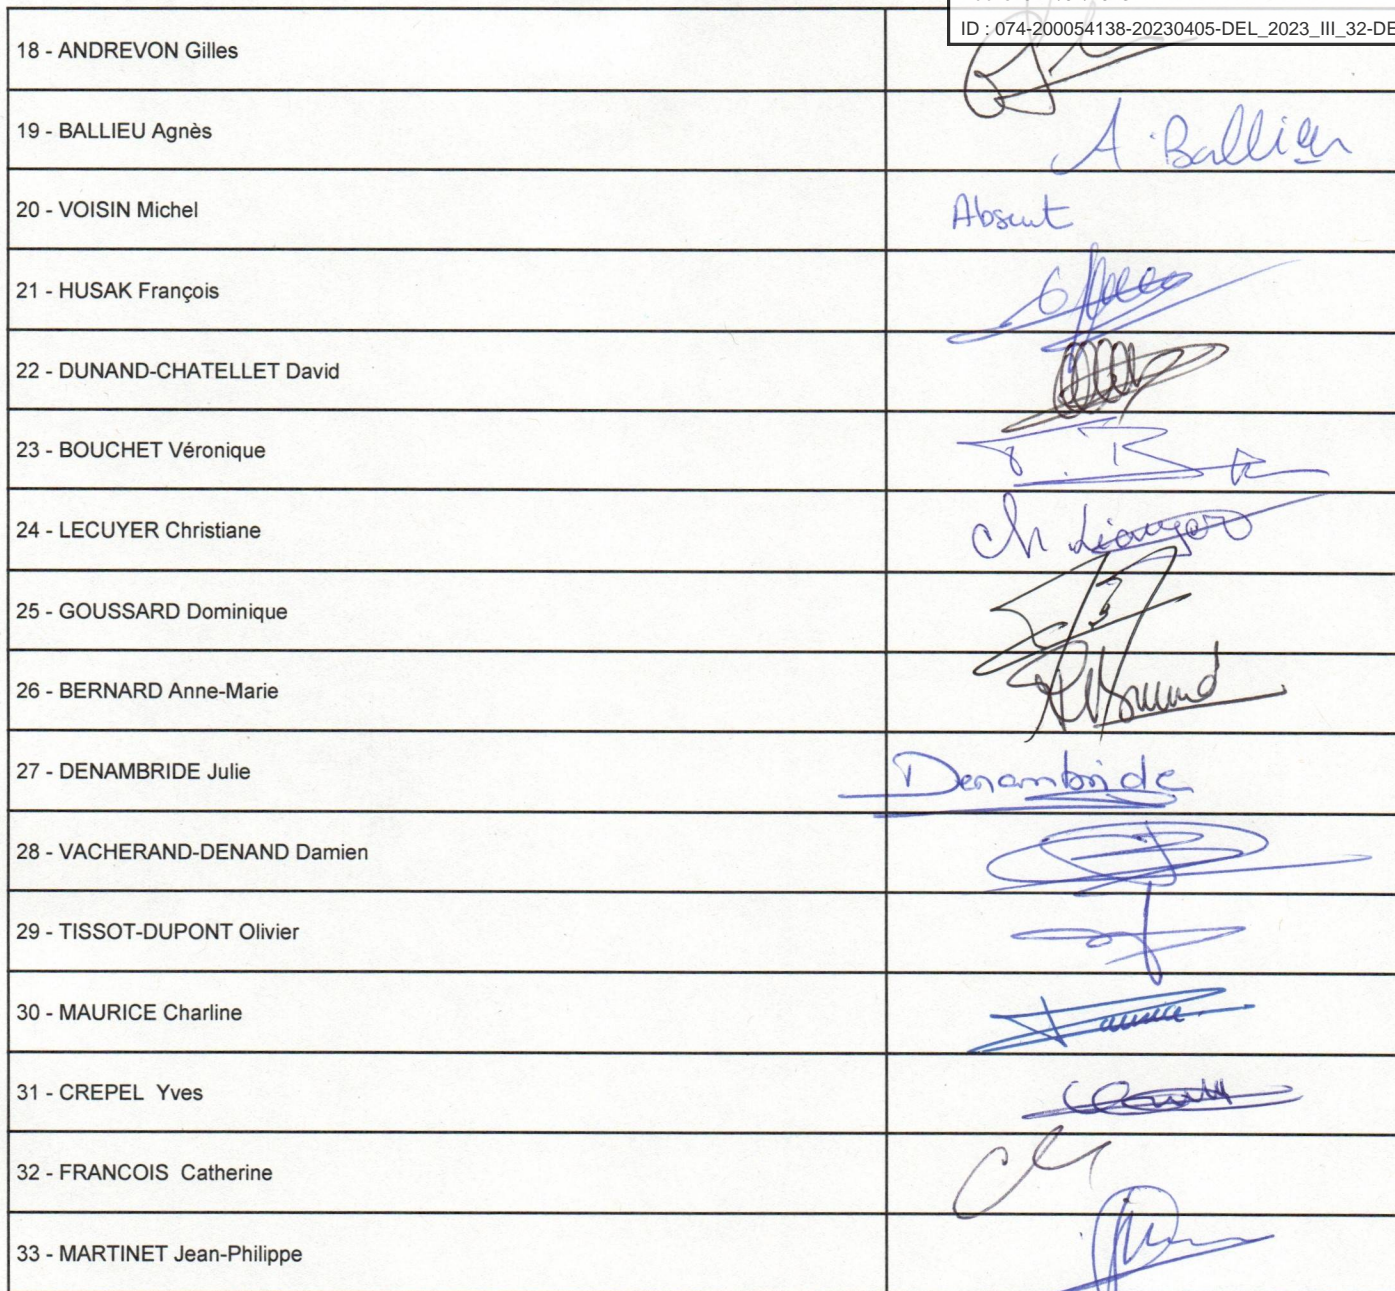 ID : 074-200054138-20230405-DEL_2023_III_32-DE
18 - ANDREVON Gilles
19 - BALLIEU Agnès
A. Ballieu
20 - VOISIN Michel
Absent
21 - HUSAK François
22 - DUNAND-CHATELLET David
23 - BOUCHET Véronique
24 - LECUYER Christiane
25 - GOUSSARD Dominique
26 - BERNARD Anne-Marie
27 - DENAMBRIDE Julie
Denambride
28 - VACHERAND-DENAND Damien
29 - TISSOT-DUPONT Olivier
30 - MAURICE Charline
31 - CREPEL Yves
32 - FRANCOIS Catherine
33 - MARTINET Jean-Philippe